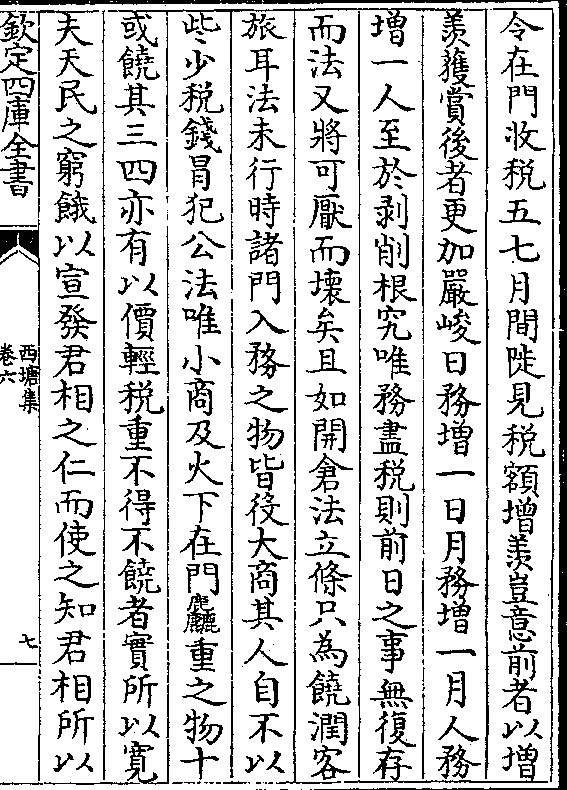 令在門收税五七月間陡見税額增羨豈意前者以增
羨獲賞後者更加嚴峻日務增一日月務增一月人務
增一人至於剥削根究唯務盡税則前日之事無復存
而法又將可厭而壞矣且如開倉法立條只為饒潤客
旅耳法未行時諸門入務之物皆役大商其人自不以
些少税錢冐犯公法唯小商及火下在門麤重之物十
或饒其三四亦有以價輕税重不得不饒者實所以寛
夫天民之窮餓以宣發君相之仁而使之知君相所以
欽定四庫全書
西塘集
卷六
七